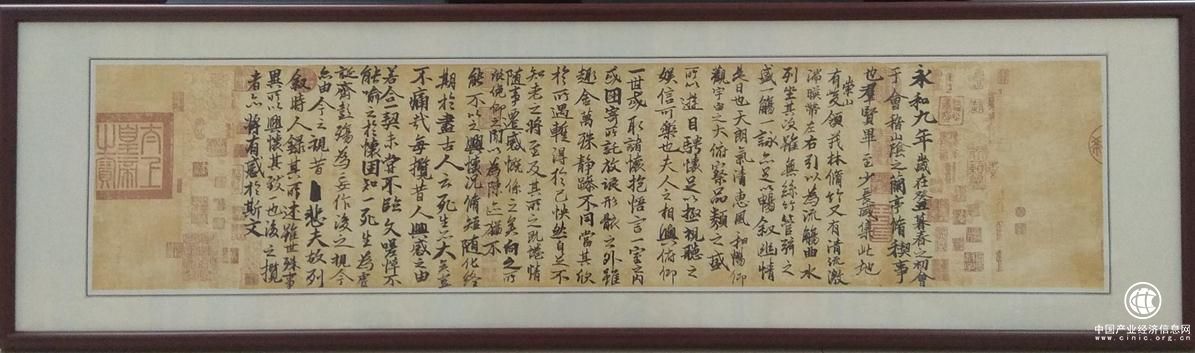 永和九年歲在癸丑暮春之初會
于會稽山陰之蘭亭脩稧事
也羣賢畢至少長咸集此地
有崇山峻領茂林脩竹又有清流激
湍暎帶左右引以為流觴曲水
列坐其次雖無絲竹管弦之
盛一觴一詠亦足以暢敘幽情
是日也天朗氣清惠風和暢仰
觀宇宙之大俯察品類之盛
所以遊目騁懷足以極視聽之
娛信可樂也夫人之相與俯仰
一世或取諸懷抱悟言一室之內
或因寄所託放浪形骸之外雖
趣舍萬殊靜躁不同當其欣
於所遇蹔得於己怏然自足不
知老之將至及其所之既惓情
隨事遷感慨係之矣向之所
欣俛仰之間以為陳迹猶不
能不以之興懷況脩短隨化終
期於盡古人云死生亦大矣豈
不痛哉每攬昔人興感之由
若合一契未嘗不臨文嗟悼不
能喻之於懷固知一死生為虛
誕齊彭殤為妄作後之視今
亦由今之視昔悲夫故列
敘時人錄其所述雖世殊事
異所以興懷其致一也後之攬
者亦將有感於斯文
太上
皇帝
之寶
中国产业经济信息网
www.cinic.org.cn